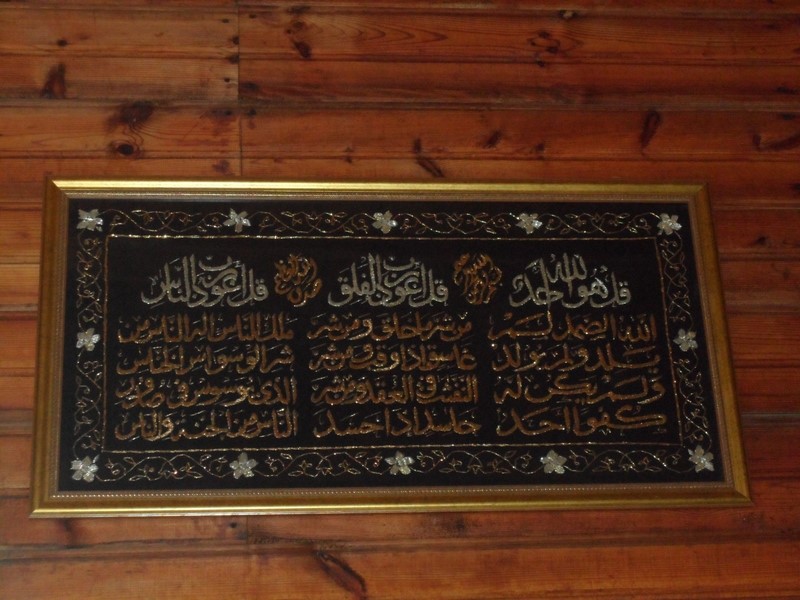 قل هو الله أحد
الله الصمد لم
يلد ولم يولد
ولم يكن له
كفوا احد
قل أعوذ برب الفلق
من شر ما خلق ومن شر
غاسق اذا وقب ومن شر
النفثت في العقد ومن شر
حاسد اذا حسد
قل أعوذ برب الناس
ملك الناس اله الناس من
شر الوسواس الخناس
الذي يوسوس في صدور
الناس من الجنة والناس